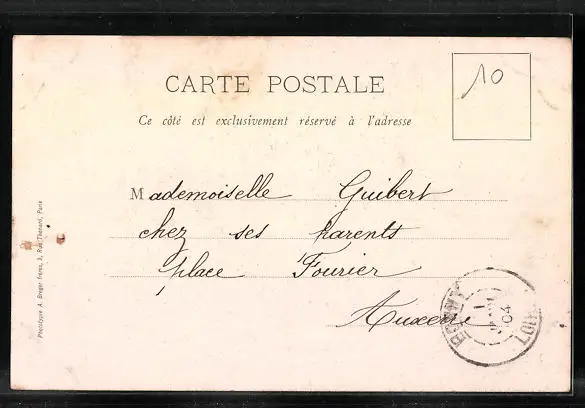 CARTE POSTALE
10
Ce côté est exclusivement réservé à l'adresse
Mademoiselle Guibert
chez ses parents
place Fourier
Auxerre
04
Phototypie A. Breger frères, 9, Rue Thénard, Paris